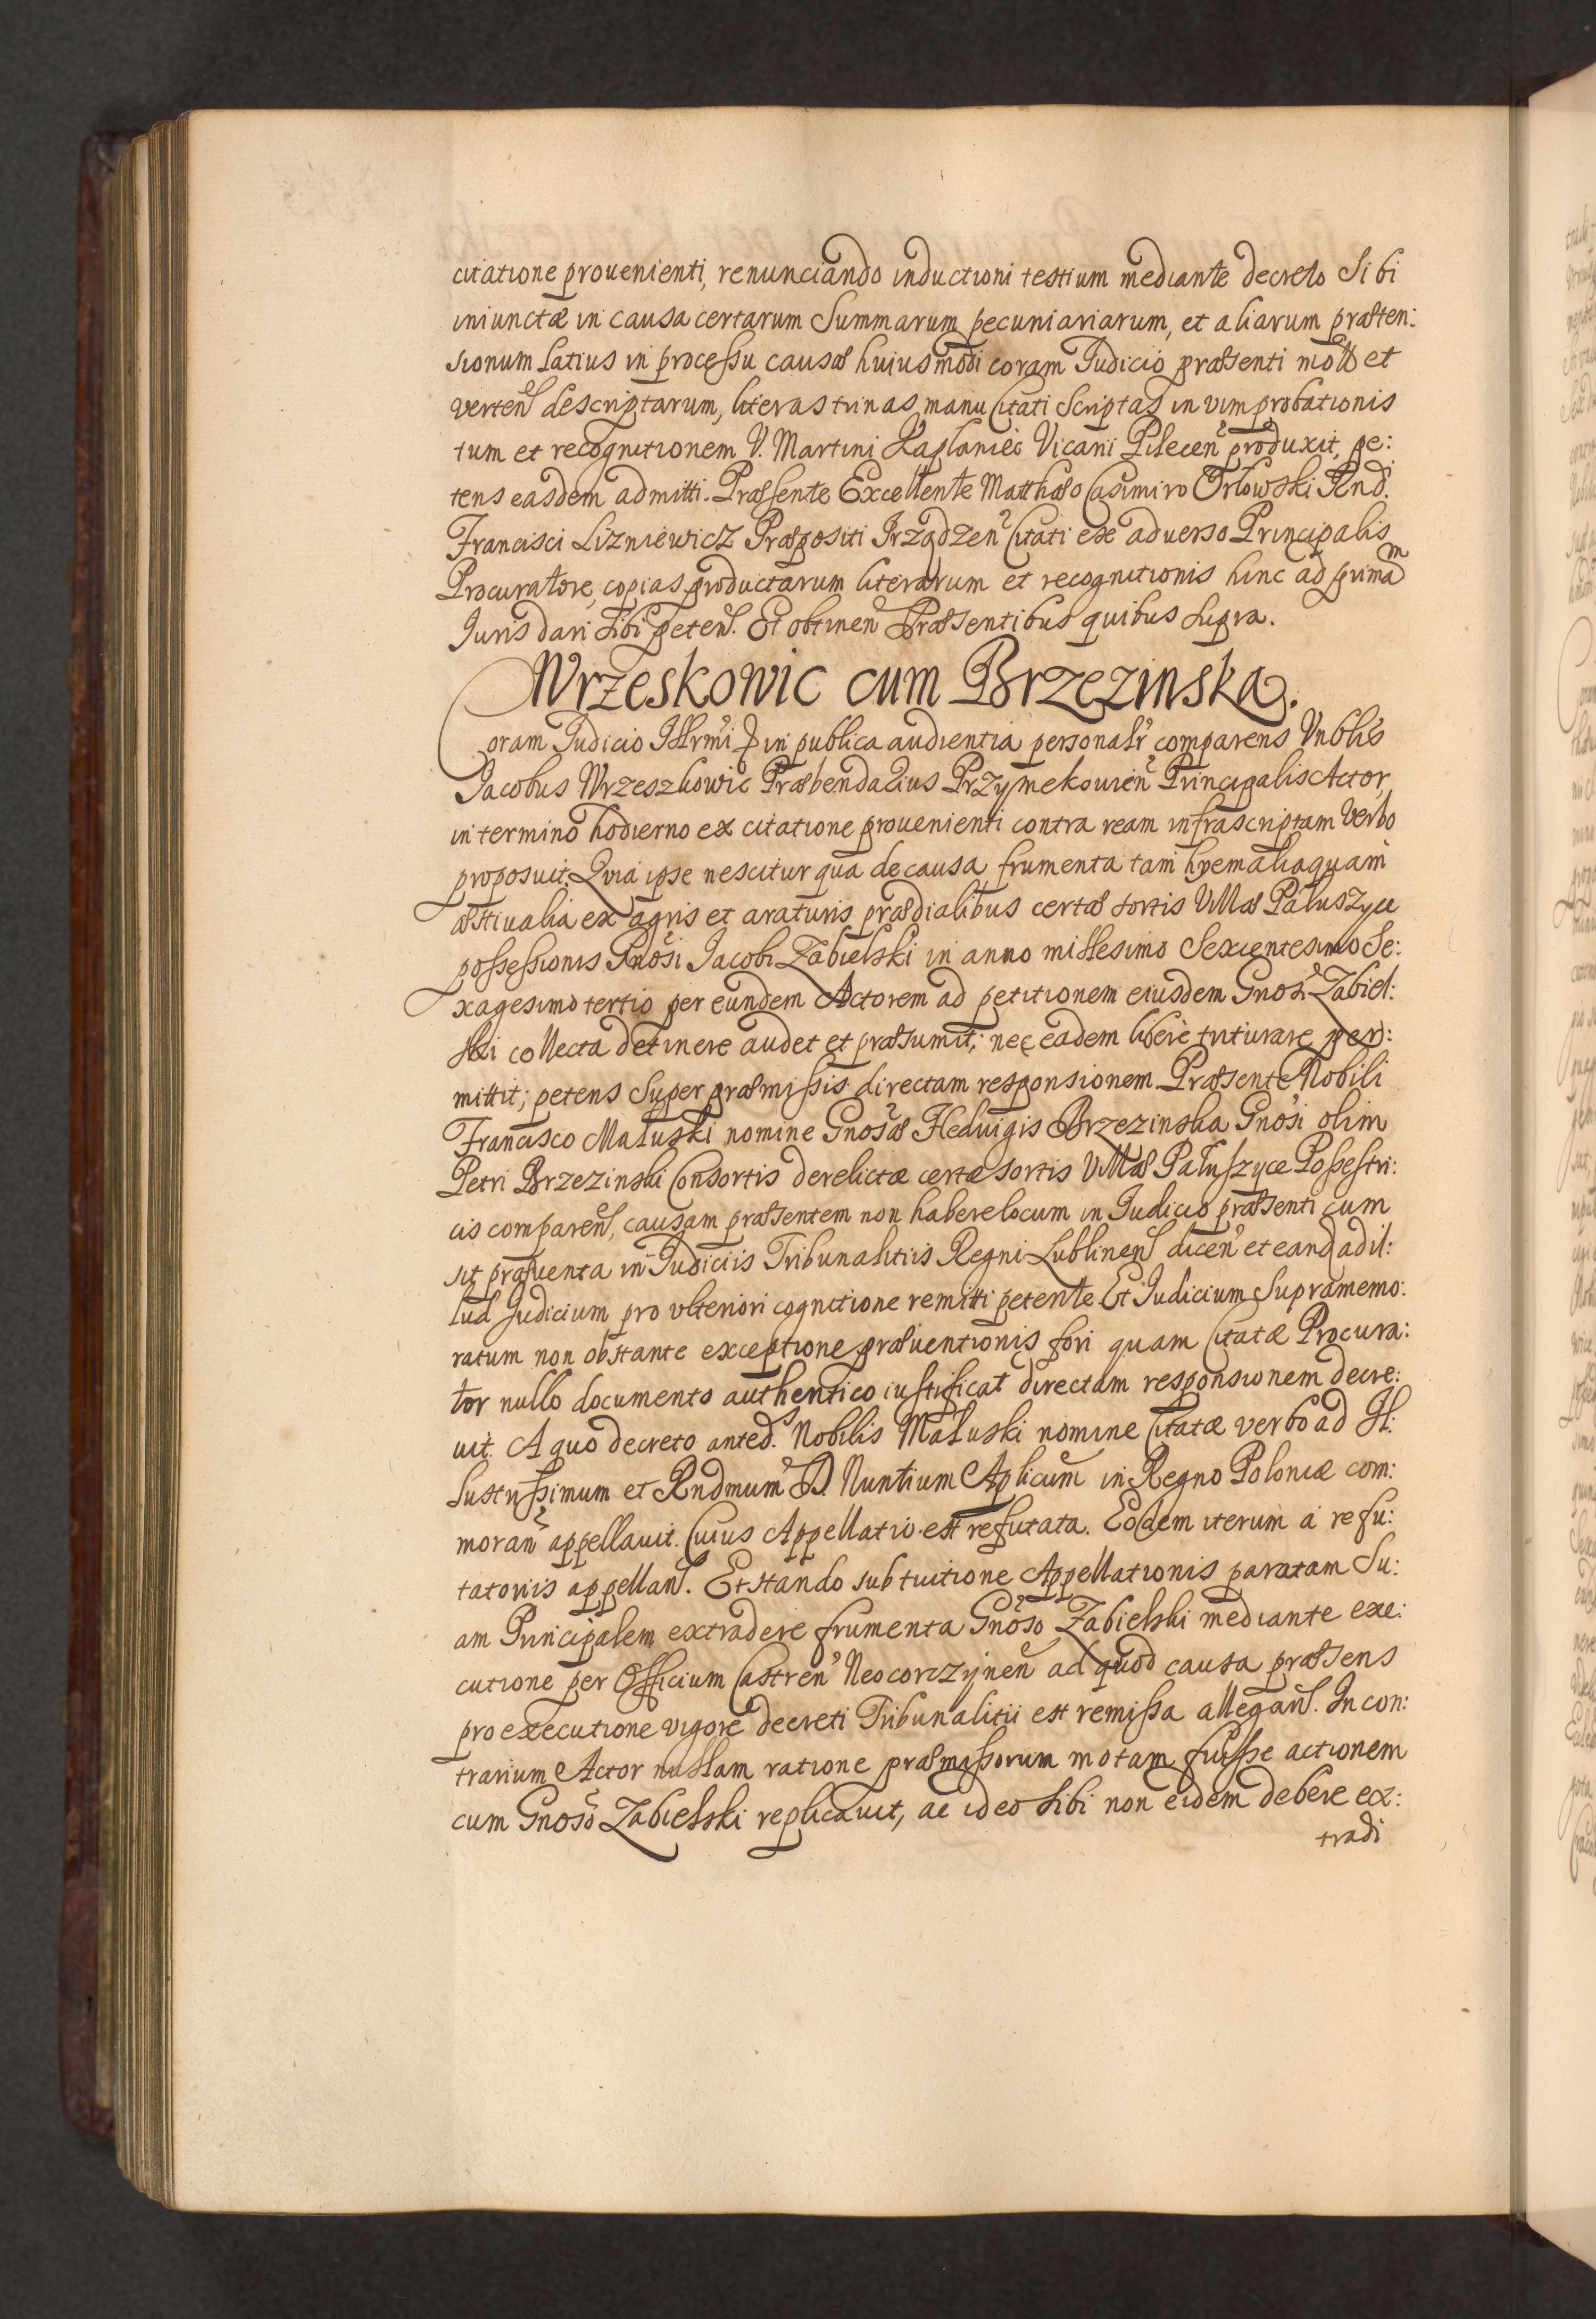 citatione prouenienti, renunciando inductioni testium mediante decreto Sibi
iniunctæ in causa certarum Summarum pecuniariarum, et aliarum præten:
sionum latius in processu causæ huiusmodi coram Iudicio præsenti mot et
verten descriptarum, literas trinas manu Citati Scriptas in vim probationis
tum et recognitionem V. Martini Kaplaniec Vicarii Pilecen produxit, pe:
tens easdem admitti. Præsente Excellente Matthæo Casimiro Orłowski Rnd.
Francisci Lizniewicz Præpositi Irządzen Citati ex aduerso Principalis
Procuratore, copias productarum literarum et recognitionis hinc ad primam
Iuris dari Sibi peten. Et obtinen Præsentibus quibus supra.
Wrzeskowic cum Brzezinska.
Coram Iudicio Illrmi D in publica audientia personalr comparens Vnblis
Jacobus Wrzeszkowic Præbendarius Przymekouien Principalis Actor
in termino hodierno ex citatione prouenienti contra ream infrascriptam Verbo
proposuit: Quia ipse nescitur qua de causa frumenta tam hyemalia quam
æstiualia ex agris et araturis prædialibus certæ sortis Villæ Pałuszyce
possessionis Gnosi Jacobi Zabielski in anno millesimo Sexcentesimo Se:
xagesimo tertio per eundem Actorem ad petitionem eiusdem Gnosi Zabiel:
ski collecta detinere audet et præsumit; nec eadem libere triturare per:
mittit; petens super præmissis directam responsionem. Præsente Nobili
Francisco Małuski nomine Gnosæ Hedvigis Brzezinska Gnosi olim
Petri Brzezinski Consortis derelictæ certæ sortis Villæ Pałuszyce Possestri:
cis comparen, causam præsentem non habere locum in Iudicio præsenti cum
sit præuenta in Iudiciis Tribunalitiis Regni Lublinen dicen et eand ad il:
lud Judicium pro vlteriori cognitione remitti petente. Et Iudicium Supramemo:
ratum non obstante exceptione præuentionis fori quam Citatæ Procura:
tor nullo documento authentico iustificat directam responsionem decre:
uit. A quo decreto anted. Nobilis Małuski nomine Citatæ verbo ad Il:
lustrissimum et Rndmum D. Nuntium Aplicum in Regno Poloniæ com:
moran appellauit. Cuius Appellatio est refutata. Eodem iterum a refu:
tatoriis appellan. Et stando sub tuitione Appellationis paratam Su:
am Principalem extradere frumenta Gnoso Zabielski mediante exe:
cutione per Officium Castren Neocorczynen ad quod causa præsens
pro executione vigore decreti Tribunalitii est remissa allegan. In con:
trarium Actor nullam ratione præmissorum motam fuisse actionem
cum Gnoso Zabielski replicauit, ac ideo Sibi non eidem debere ex:
tradi